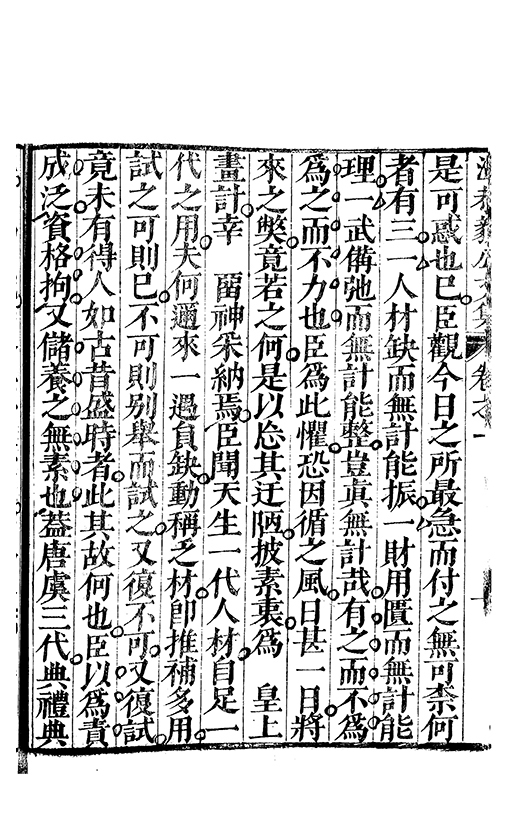 是可惑也巳臣觀今日之所最急而付之無可柰何
者有三一人材缺而無計能振一財用匱而無計能
理一武備弛而無計能整豈眞無計哉有之而不爲
爲之而不力也臣爲此懼恐因循之風日甚一日將
來之弊竟若之何是以忘其迂陋披素衷爲　皇上
畫計幸　畱神采納焉臣聞天生一代人材自足一
代之用夫何邇來一遇員缺動稱乏材卽推補多用
試之可則巳不可則別舉而試之又復不可又復試
竟未有得人如古昔盛時者此其故何也臣以爲責
成泛資格拘又儲養之無素也蓋唐虞三代典禮典